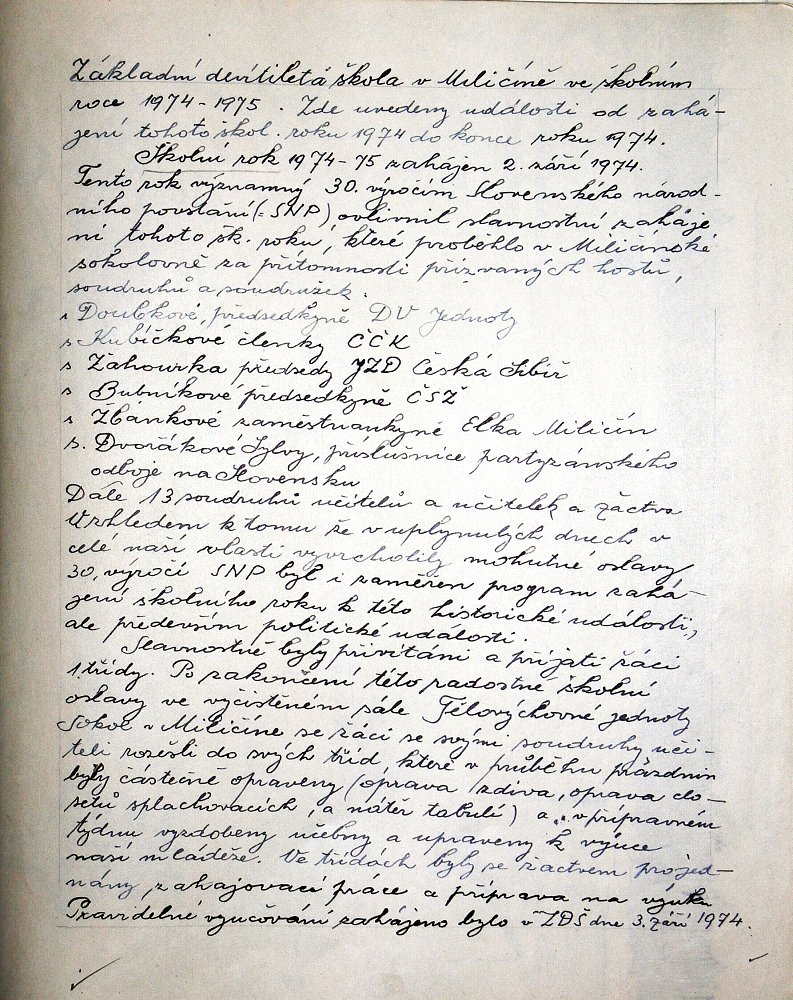 Základní devítiletá škola v Miličíně ve školním
roce 1974-1975. Zde uvedeny události od zahá-
jení tohoto škol. roku 1974 do konce roku 1974.
Školní rok 1974-75 zahájen 2. září 1974.
Tento rok významný 30. výročím Slovenského národ-
ního povstání (=SNP) ovlivnil slavnostní zaháje
ní tohoto šk. roku, které proběhlo v Miličínské
sokolovně za přítomnosti přizvaných hostů,
soudruhů a soudružek.
s Doubkové, předsedkyně DV Jednoty
s Kubíčkové členky ČČK
s Záhourka předsedy JZD Česká Sibiř
s Bubníkové předsedkyně ČSŽ
s Zbánkové zaměstnankyně Elka Miličín
s. Dvořákové Sylvy, příslušnice partyzánského
odboje na Slovensku
Dále 13 soudruhů učitelů a učitelek a žactva
Vzhledem k tomu že v uplynulých dnech v
celé naší vlasti vyvrcholily mohutné oslavy
30. výročí SNP byl i zaměřen program zahá-
jení školního roku k této historické události,
ale především politické události.
Slavnostně byly přivítáni a přijati žáci
1. třídy. Po zakončení této radostné školní
oslavy ve vyčistěném sále Tělovýchovné jednoty
Sokol v Miličíne se žáci se svými soudruhy uči-
teli rozešli do svých tříd, které v průběhu prázdnin
byly částečně opraveny (oprava zdiva, oprava clo-
setů splachovacích, a nátěr tabulí) a v přípravném
týdnu vyzdobeny učebny a upraveny k výuce
naší mládeže. Ve třídách byly se žactvem projed-
nány, zahajovací práce a příprava na výuku
Pravidelné vyučování zahájeno bylo v ZDŠ dne 3. září 1974.